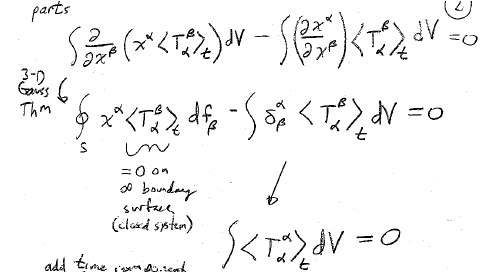 parts
(2)
∫ ∂/∂x^β (x^α <T_α^β>_t) dV − ∫ (∂x^α/∂x^β) <T_α^β>_t dV = 0
3-D
Gauss
Thm
∮_S x^α <T_α^β>_t df_β − ∫ δ_β^α <T_α^β>_t dV = 0
= 0 on
∞ boundary
surface
(closed system)
∫ <T_α^α>_t dV = 0
add time